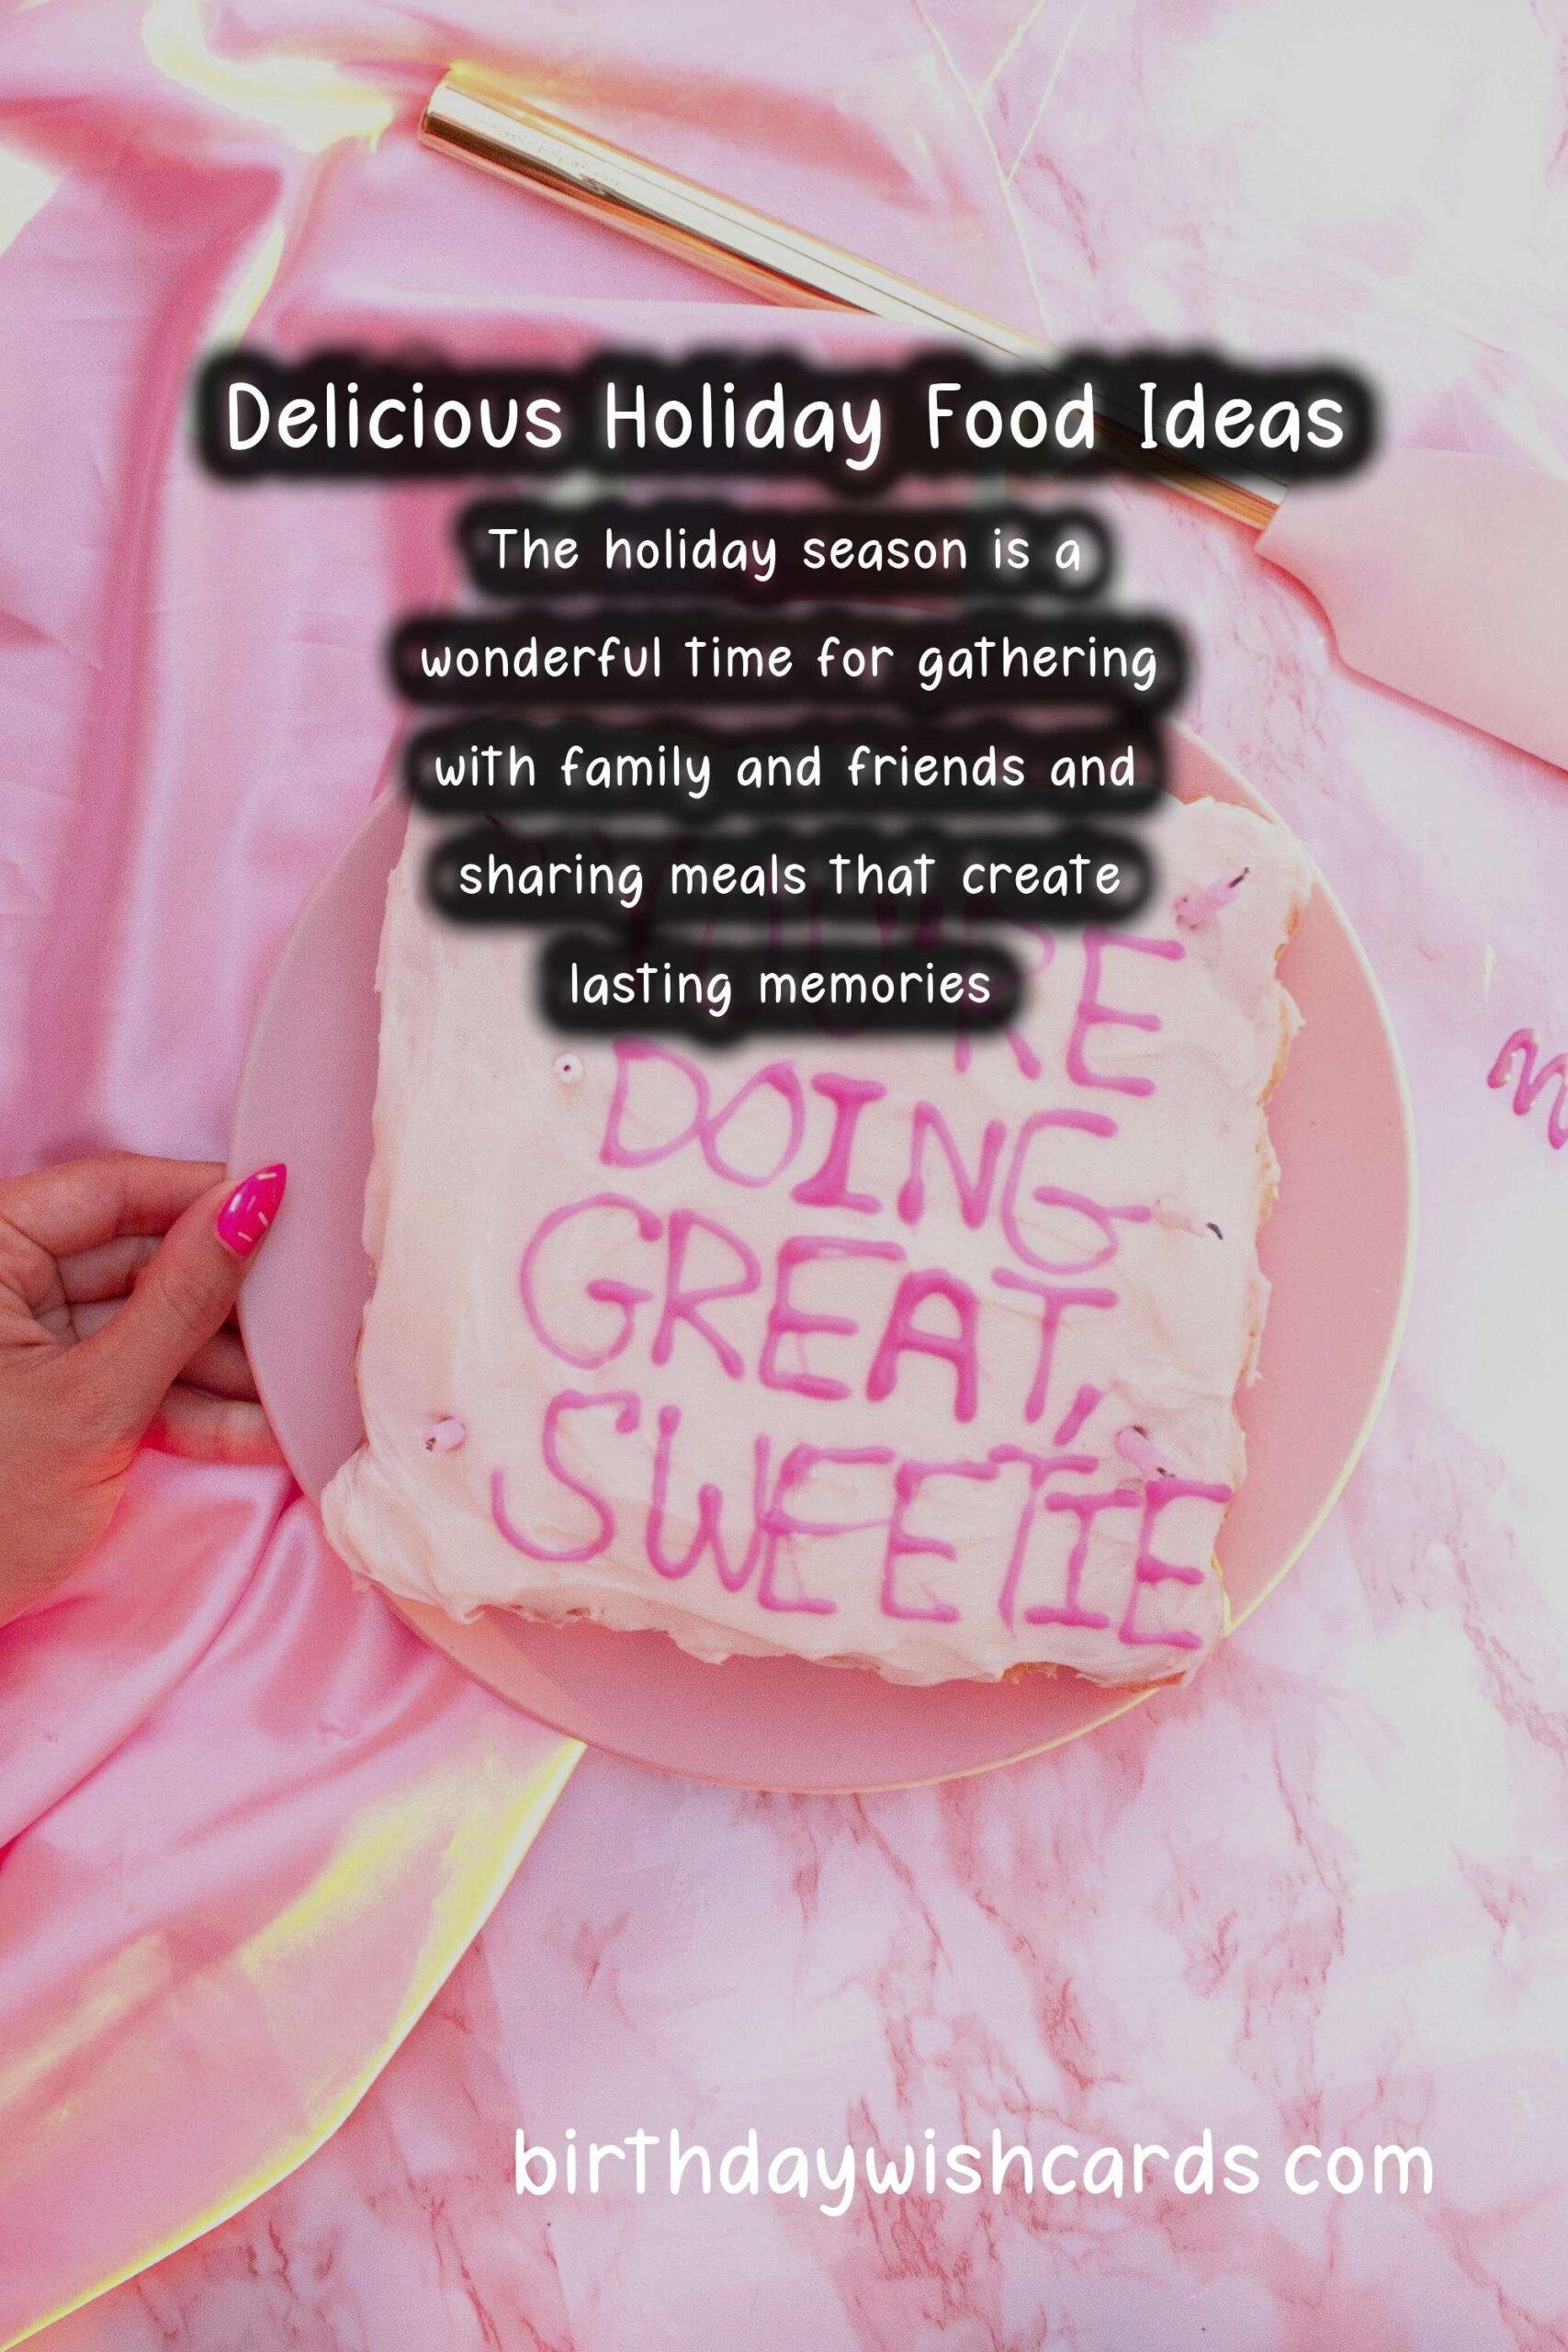 Delicious Holiday Food Ideas
The holiday season is a
wonderful time for gathering
with family and friends and
sharing meals that create
lasting memories
YOU'RE
DOING
GREAT,
SWEETIE
birthdaywishcards com